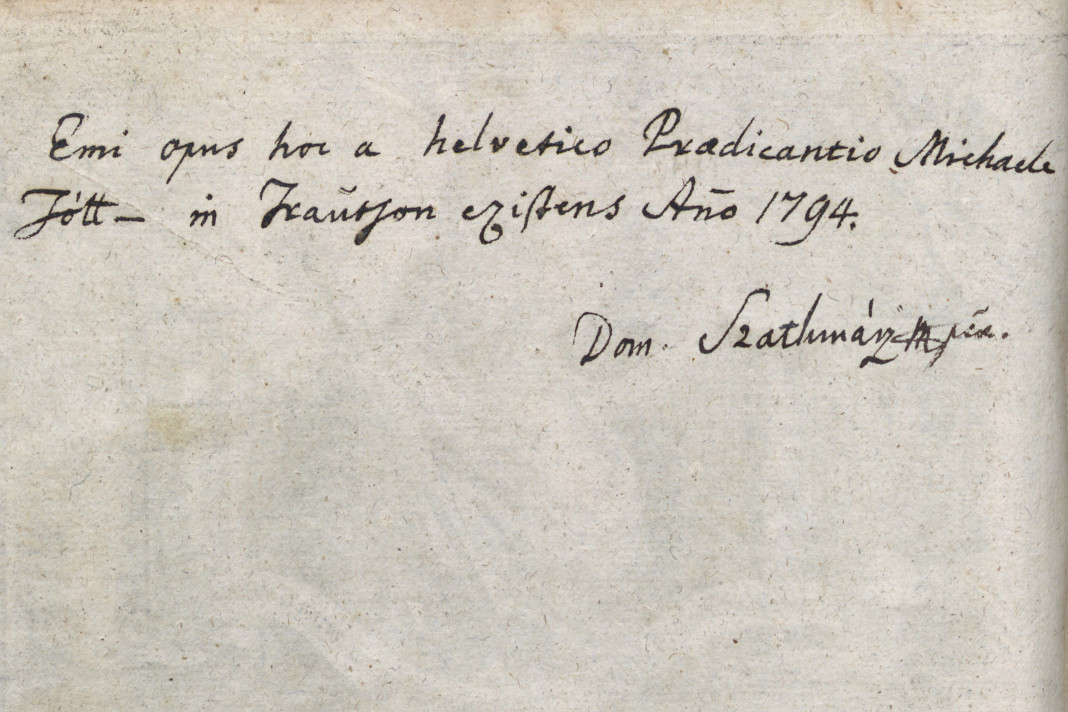 Emi opus hoc a helvetico Prædicantio Michaele
Tótt – in Traŭtson existens Año 1794.
Dom. Szathmáry mpria.